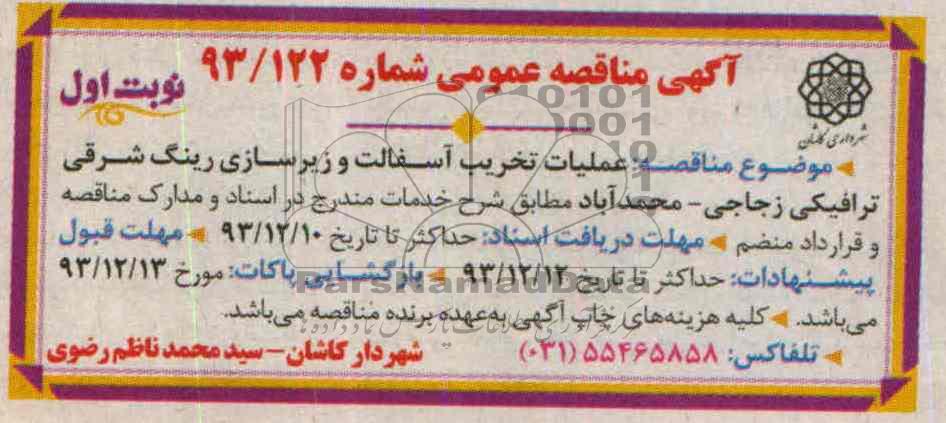 آگهی مناقصه عمومی شماره ۹۳/۱۲۲
نوبت اول
شهرداری کاشان
موضوع مناقصه: عملیات تخریب آسفالت و زیرسازی رینگ شرقی
ترافیکی زجاجی - محمدآباد مطابق شرح خدمات مندرج در اسناد و مدارک مناقصه
و قرارداد منضم ◄ مهلت دریافت اسناد: حداکثر تا تاریخ ۹۳/۱۲/۱۰ ◄ مهلت قبول
پیشنهادات: حداکثر تا تاریخ ۹۳/۱۲/۱۲ ◄ بازگشایی پاکات: مورخ ۹۳/۱۲/۱۳
می‌باشد. ◄ کلیه هزینه‌های چاپ آگهی به‌عهده برنده مناقصه می‌باشد.
◄ تلفاکس: ۵۵۴۶۵۸۵۸ (۰۳۱)
شهردار کاشان - سید محمد ناظم رضوی
ParsNamadData